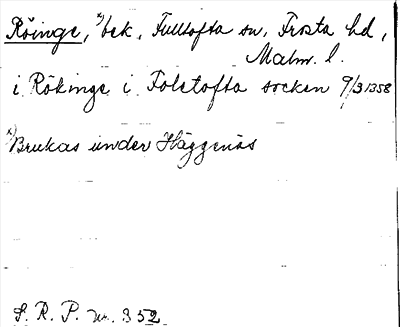 Röinge, x) bek, Fulltofta sn, Frosta hd,
Malm. l.
i Rökinge i Foletofta socken 9/3 1358
x) Brukas under Häggenäs
S. R. P. nr. 352